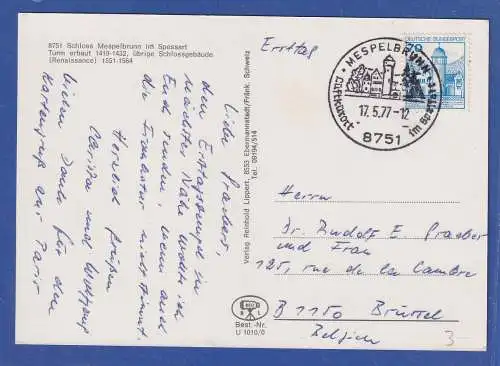 8751 Schloss Mespelbrunn im Spessart
Turm erbaut 1419-1432, übrige Schlossgebäude
(Renaissance) 1551-1564
Ersttag
MESPELBRUNN
Luftkurort
im Spessart
17.5.77-12
8751
70
Liebe Graebers,
den Ersttagsstempel in
nächster Nähe wollte ich
Euch senden, wenn auch
die Frankatur nicht stimmt.
Herzlich grüßen
Christa und Wolfgang
Vielen Dank für den
Kartengruß aus Paris
Verlag Reinhold Lippert, 8553 Ebermannstadt/Fränk. Schweiz
Tel. 09194/514
Best.-Nr.
U 1010/0
Herrn
Dr. Rudolf E. Graeber
und Frau
125, rue de la Cambre
B 1150 Brüssel
Belgien
3-